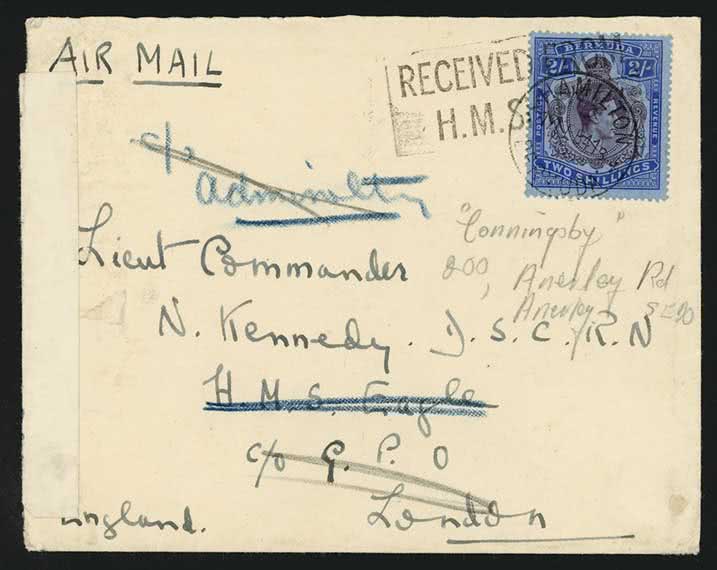 AIR MAIL
RECEIVED FROM
H.M.S.
BERMUDA
2/- 2/-
POSTAGE REVENUE
TWO SHILLINGS
HAMILTON
c/o
Admiralty
"Conningsby"
200, Anerley Rd
Anerley SE20
Lieut Commander
N. Kennedy. D.S.C. R.N
H.M.S. Eagle
c/o G.P.O
London
England.